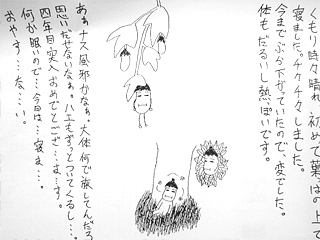 くもり時々晴れ 初めて葉っぱの上で
寝ました。チクチクしました。
今までぶら下がっていたので、変でした。
体もだるいし熱っぽいです。
あぁナス風邪かなぁ。大体何で旅してんだろ
思いだせないなぁ。ハエもずっとついてくるし…。
四年目突入おめでとうござ…ま…す。
何か眠いので…今日は…寝ま…。
おやす…な…い。